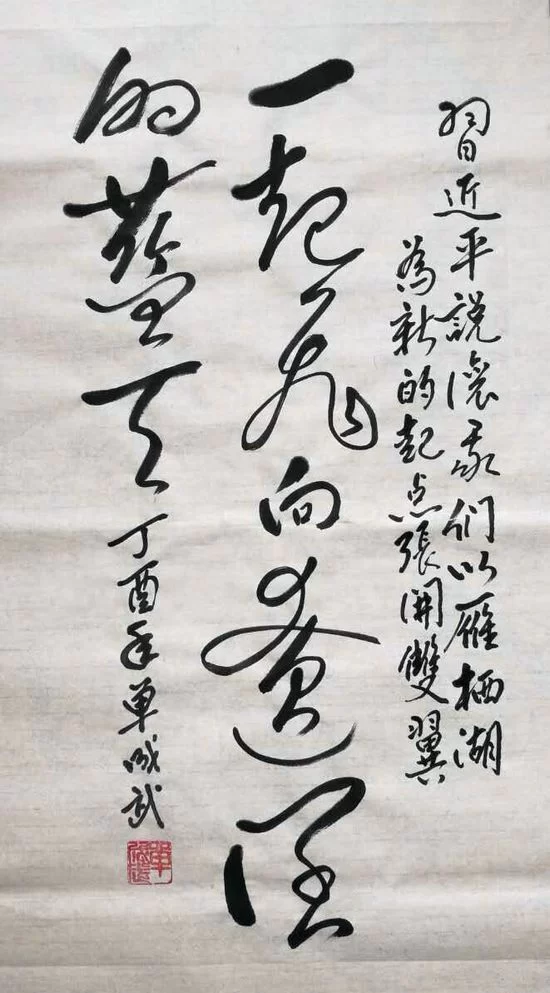 習近平說讓我們以雁栖湖
為新的起点張開雙翼
一起飛向遼闊
的藍天
丁酉年單成武